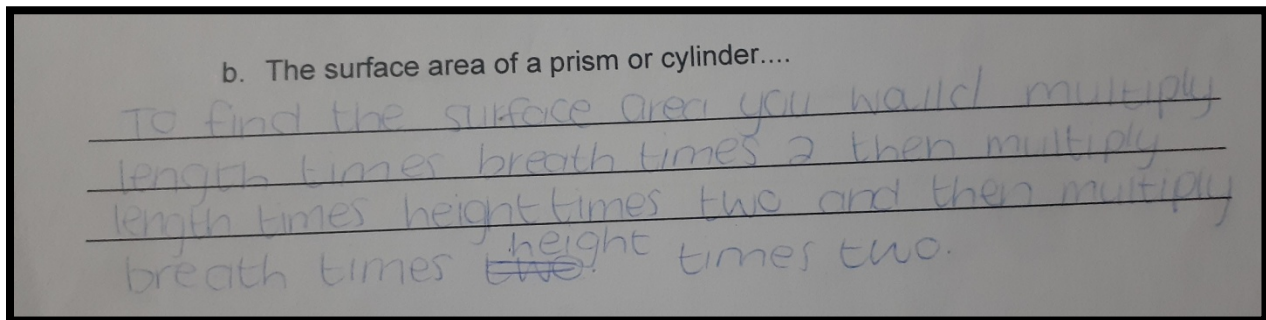 b. The surface area of a prism or cylinder....
To find the surface area you would multiply
length times breath times 2 then multiply
length times height times two and then multiply
breath times two height times two.